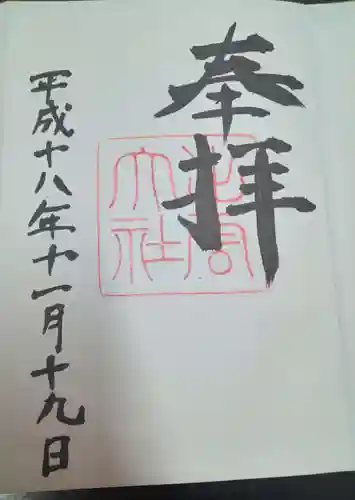 奉拝
大社
平成十八年十一月十九日